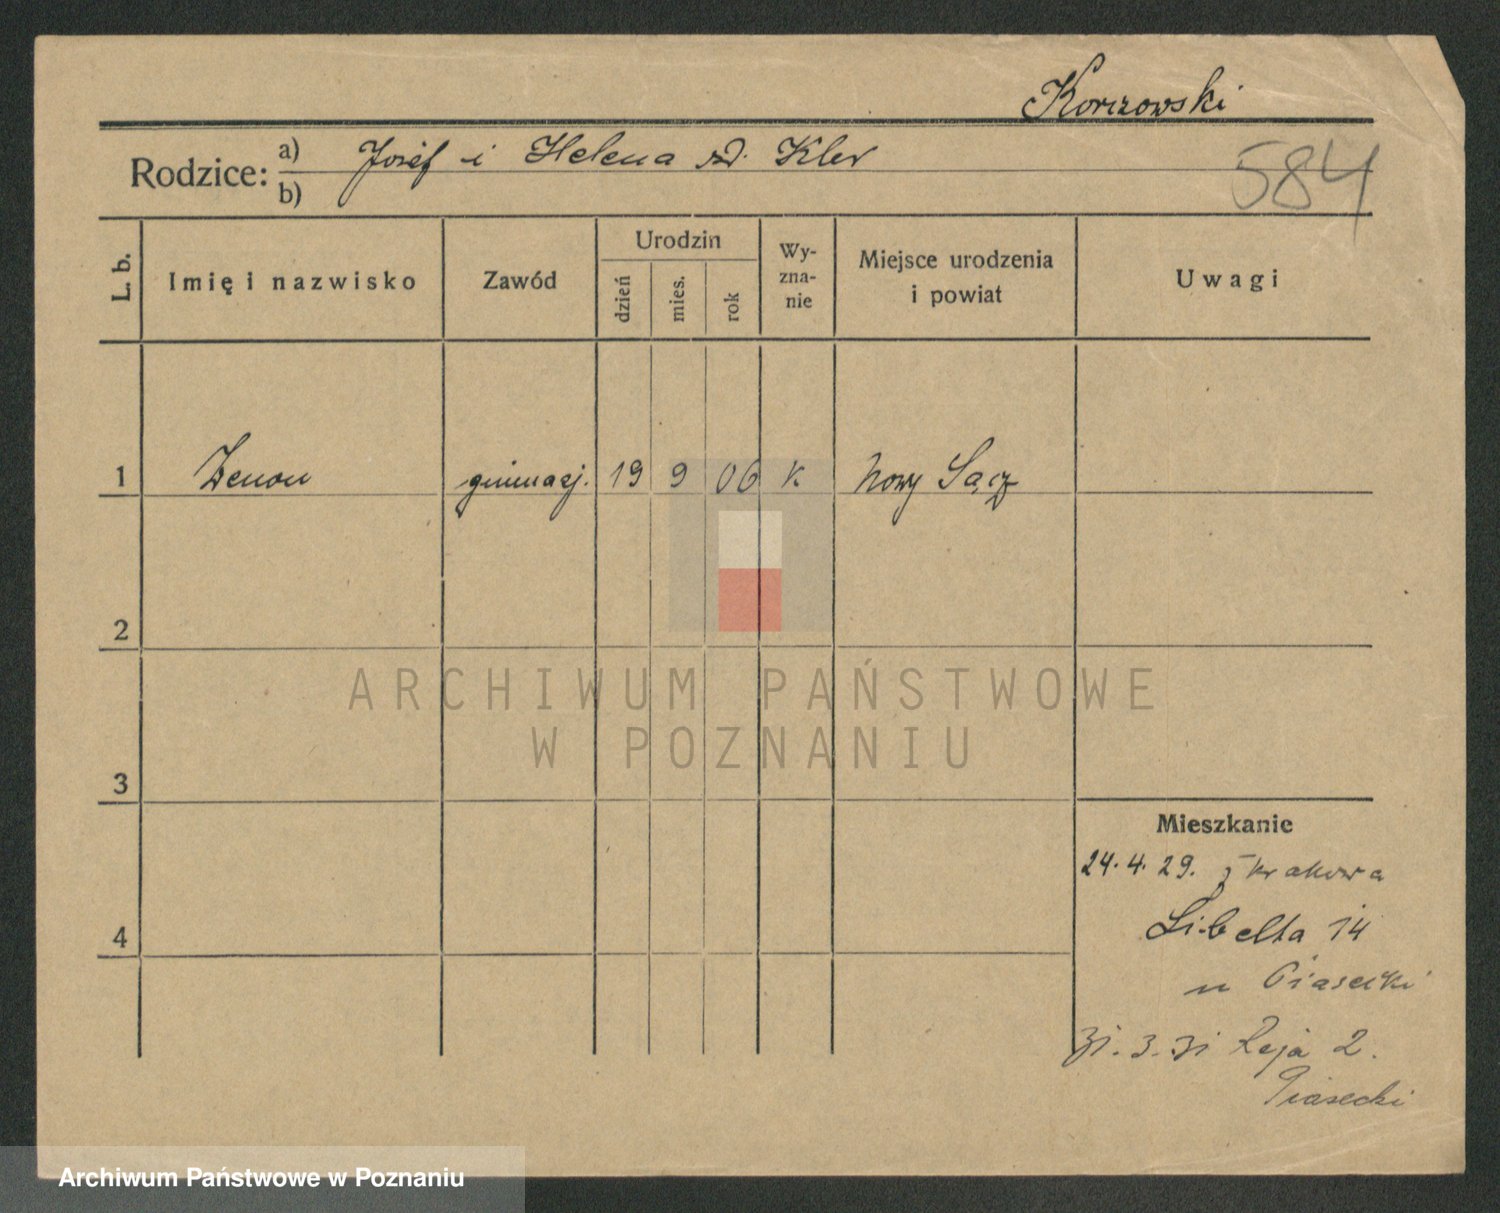 Korczowski
Rodzice: a) Józef i Helena zd. Kler
b)
584
L. b. Imię i nazwisko Zawód Urodzin dzień mies. rok Wy-zna-nie Miejsce urodzenia i powiat Uwagi
1 Zenon gimnazj. 19 9 06 k Nowy Sącz
2
ARCHIWUM PAŃSTWOWE
W POZNANIU
3
Mieszkanie
24.4.29. z Krakowa
4
Libelta 14
u Piasecki
31.3.31 Reja 2.
Piasecki
Archiwum Państwowe w Poznaniu